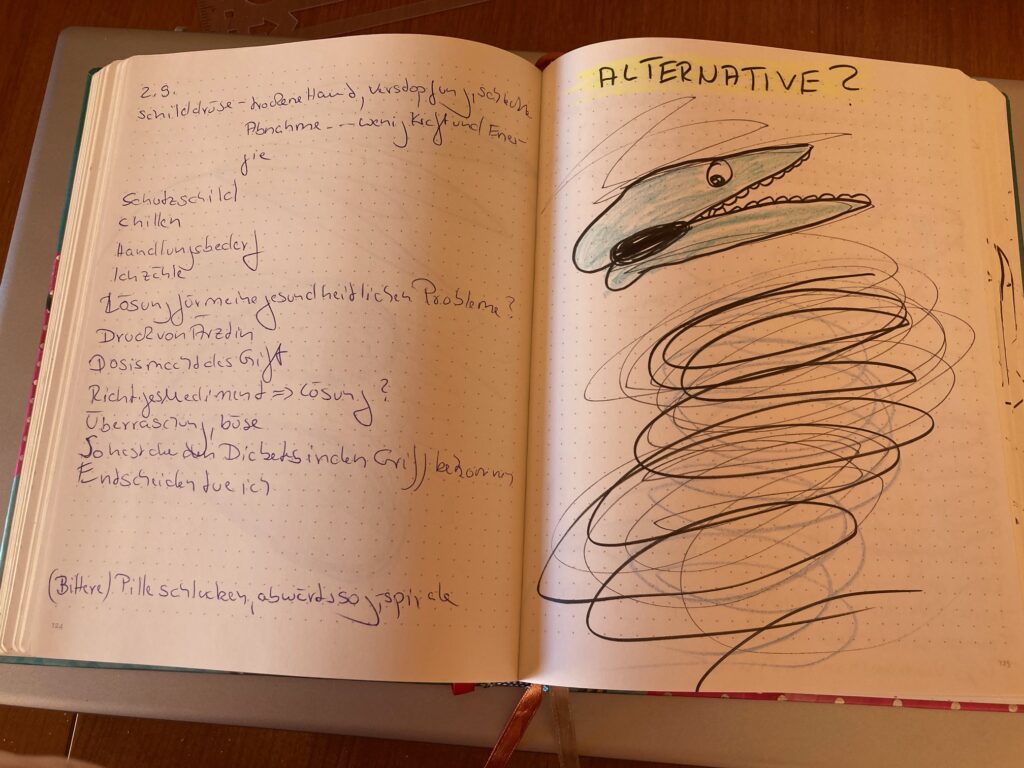 2.9.
Schilddrüse - trockene Haut, Verstopfung, schlechte
Abnahme - - wenig Kraft und Ener-
gie
Schutzschild
chillen
Handlungsbedarf
Ich zähle
Lösung für meine gesundheitlichen Probleme?
Druck von Ärztin
Dosis macht das Gift
Richtiges Medikament => Lösung?
Überraschung, böse
Diabetes in den Griff bekommen
Entscheiden tue ich
(Bittere) Pille schlucken, abwärtssog, spirale
124
ALTERNATIVE?
125